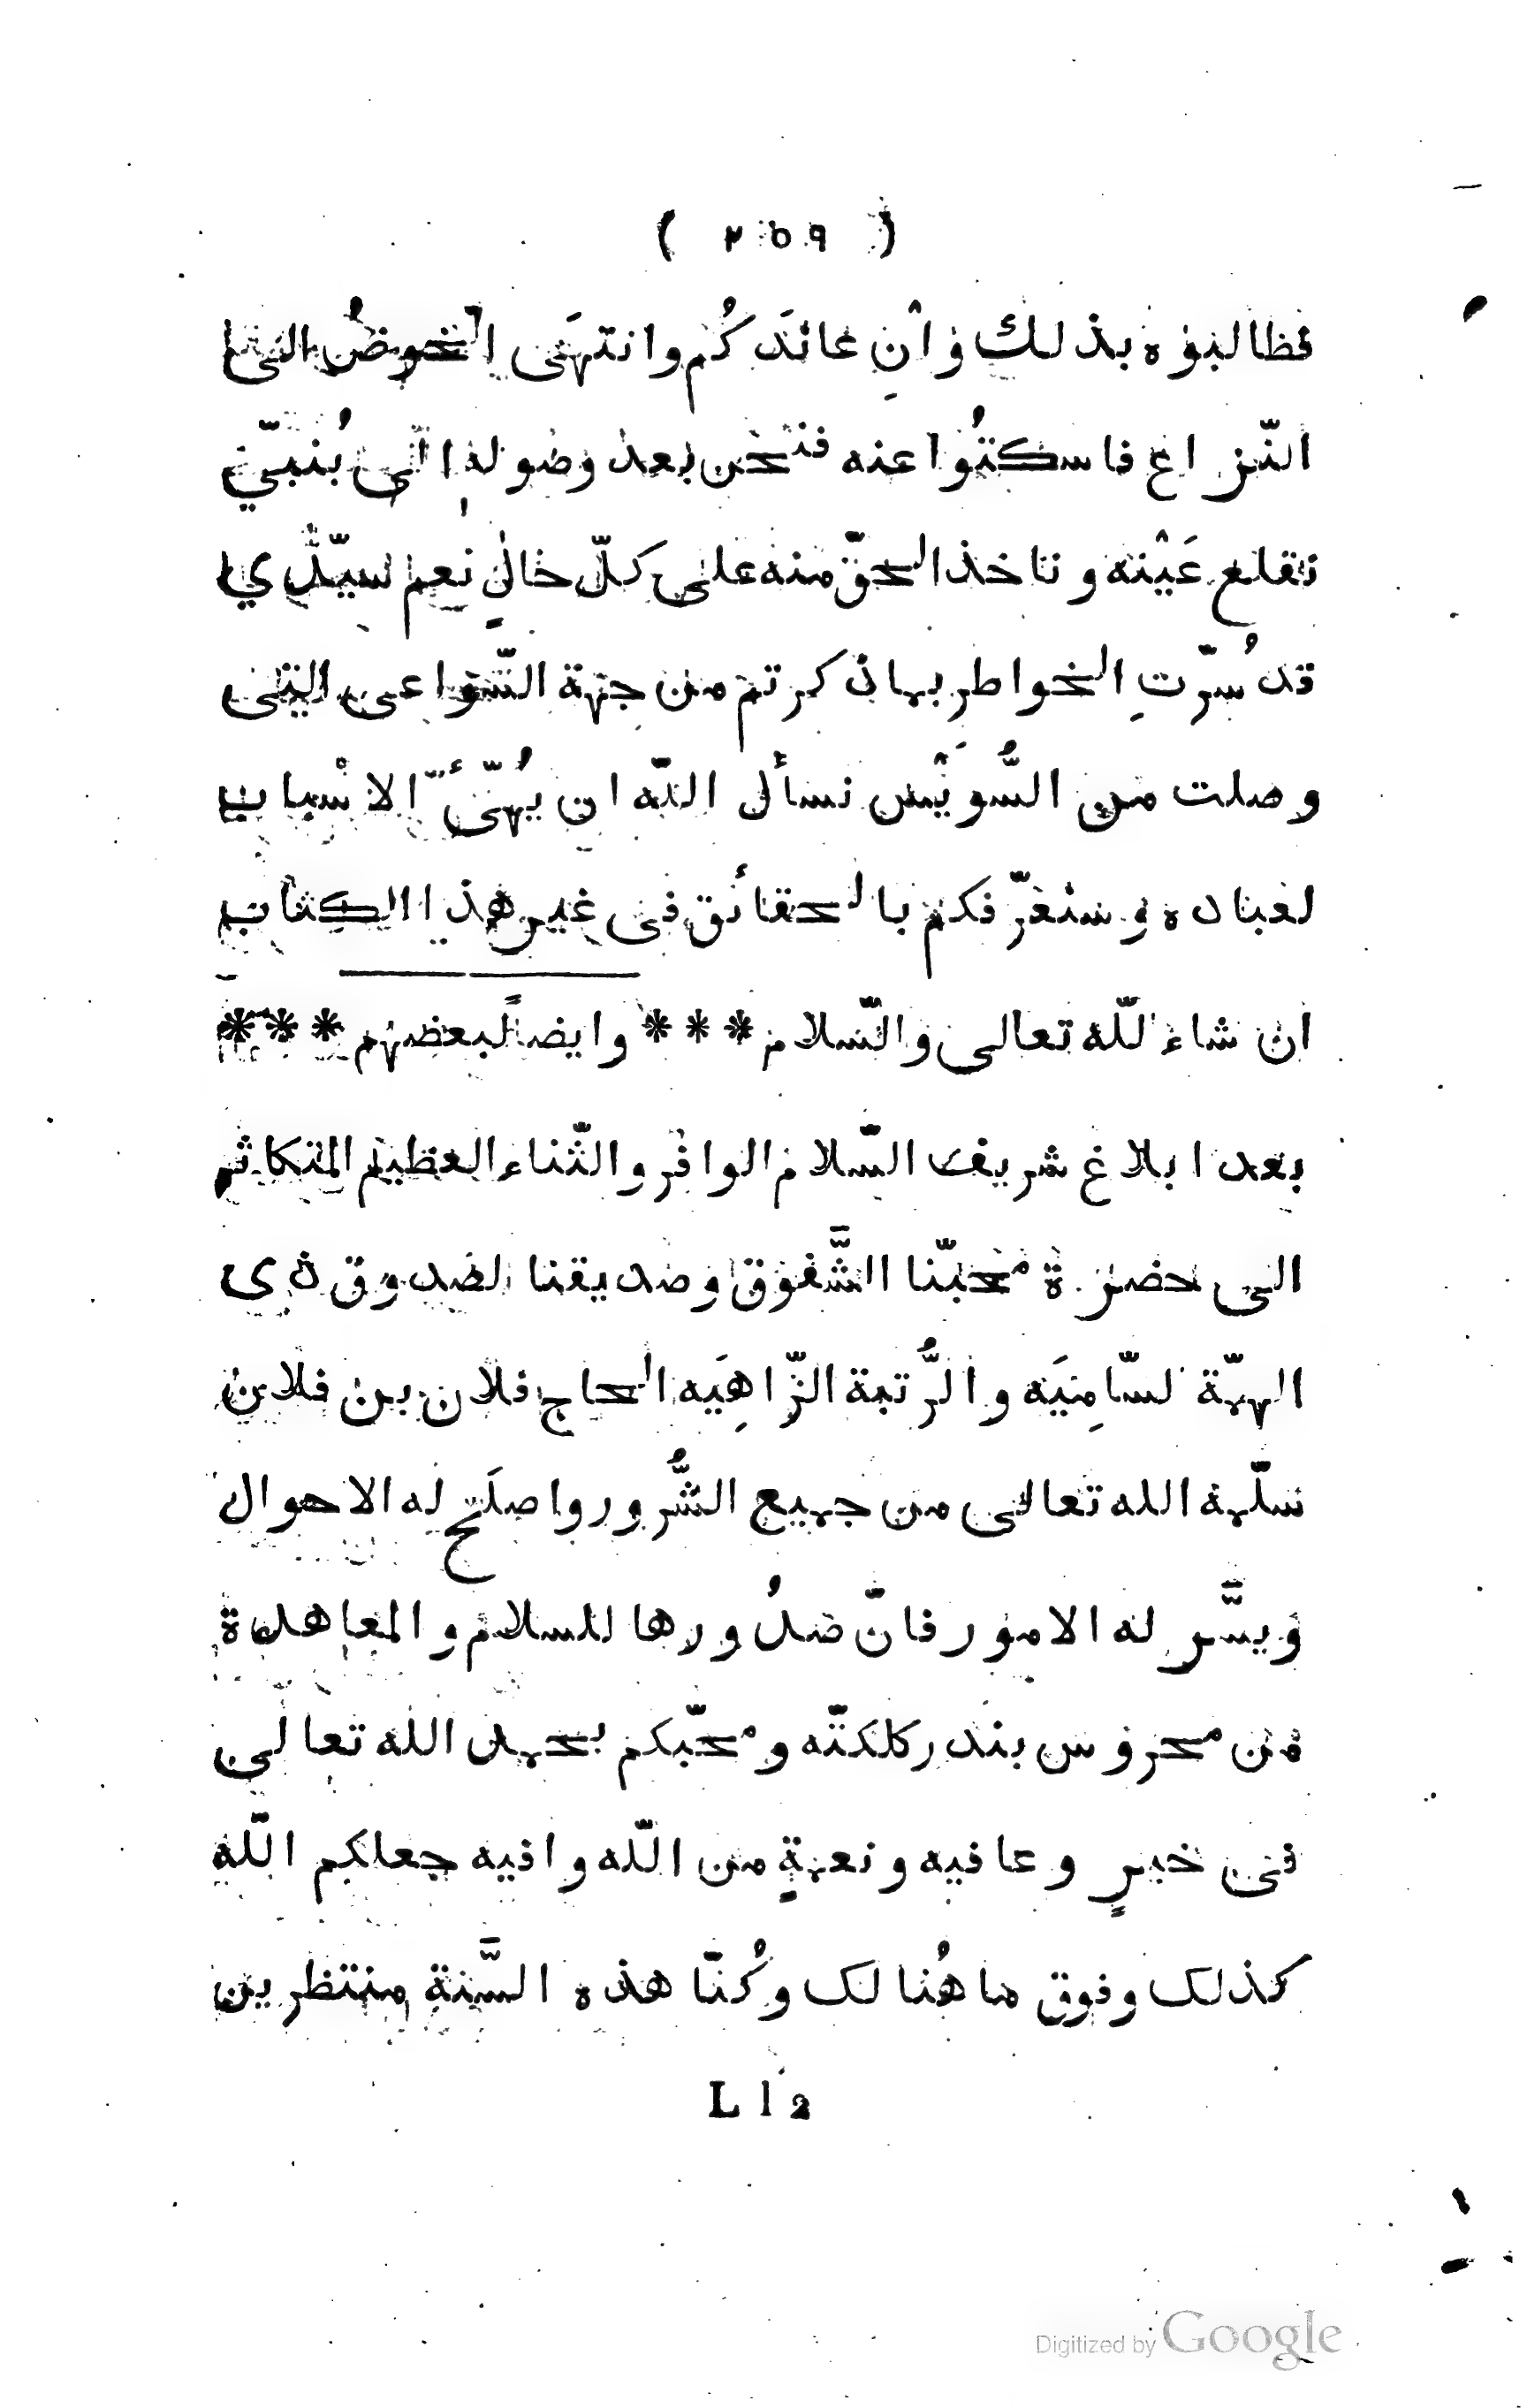 ( ٢٥٩ )
فطالبوه بذلك وان عاندَكُم وانتهَى الخوضُ الى
النّزاع فاسكتُوا عنه فنحن بعد وصوله الى بُنبَيّ
نقلع عَيْنه وناخذ الحقّ منه على كلّ حالٍ نعم سيّدي
قد سُرّتِ الخواطر بما ذكرتم من جهة السّواعى التى
وصلت من السُّويْس نسأل اللّه ان يُهيّئ الاسْباب
لعباده وسنعرّفكم بالحقائق فى غير هذا الكتاب
ان شاء للّه تعالى والسّلام * * * وايضاً لبعضهم * * *
بعد ابلاغ شريف السّلام الوافر والثّناء العظيم المتكاثر
الى حضرة محبّنا الشَّفوق وصديقنا لصدوق ذى
الهمّة لسّامِيَه والرُّتبة الزّاهِيَه الحاج فلان بن فلان
سلّمه الله تعالى من جميع الشُّرور واصلَح له الاحوال
ويسَّر له الامور فانّ صدُورها للسلام والمعاهدة
من محروس بندر كلكتّه ومحبّكم بحمد الله تعالى
فى خيرٍ وعافيه ونعمةٍ من اللّه وافيه جعلكم اللّه
كذلك وفوق ما هُنالك وكُنّا هذه السَّنة منتظرين
L l 2
Digitized by Google